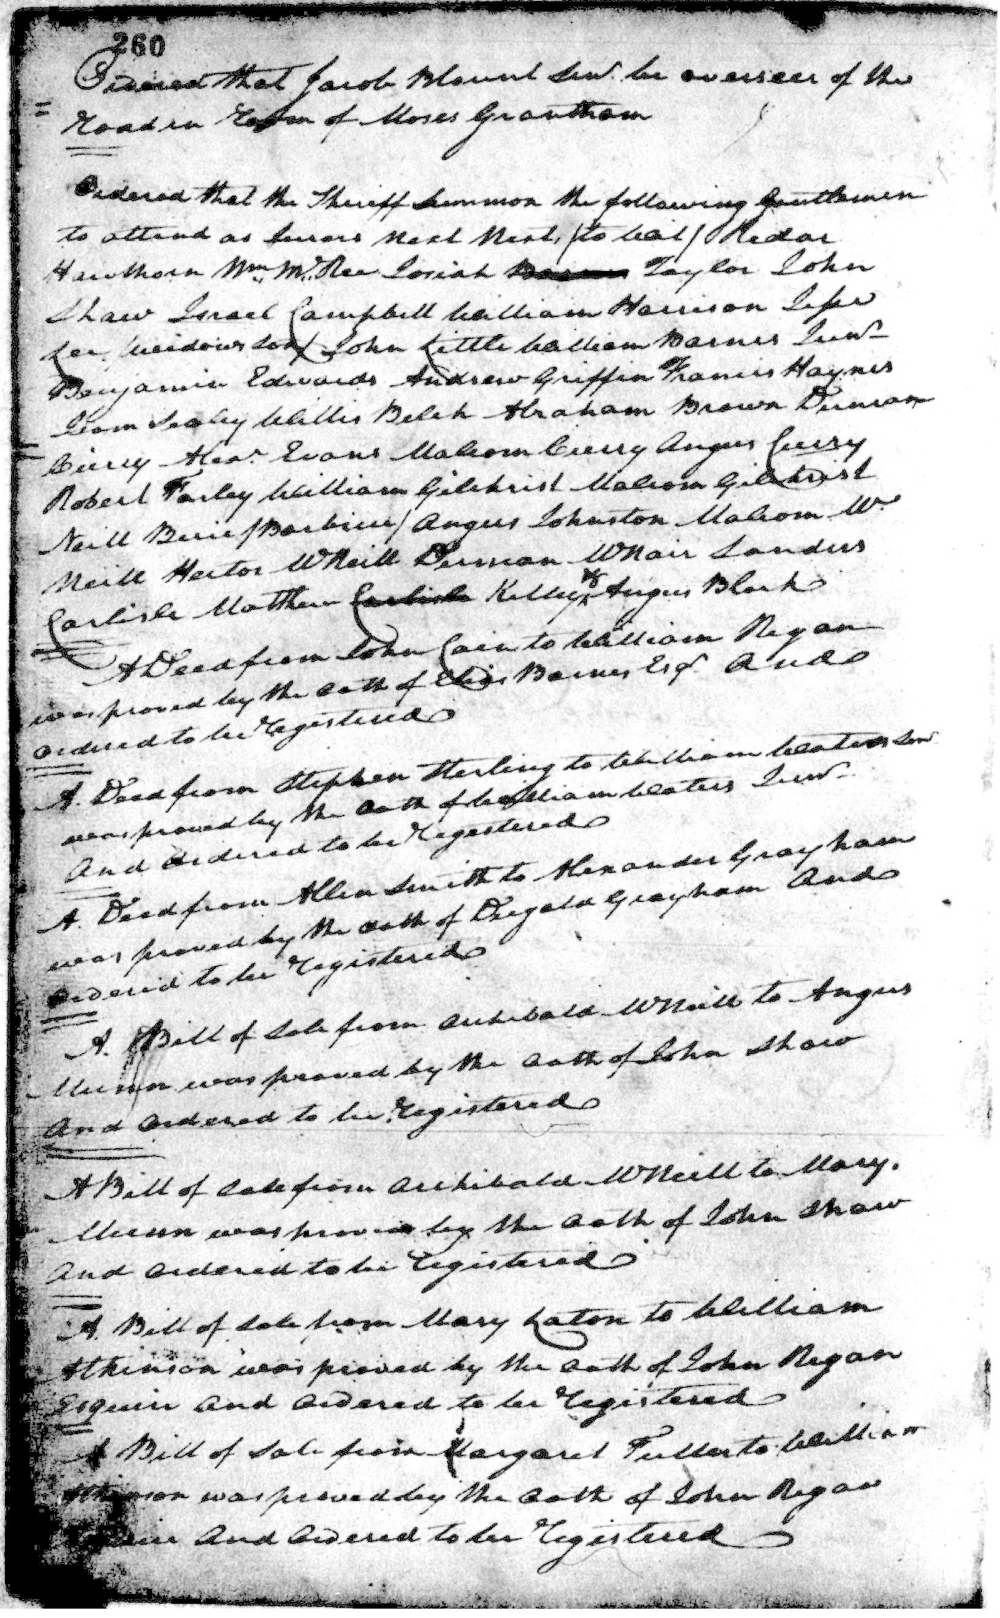 260
Ordered that Jacob Blount Senr. be overseer of the
Road in Room of Moses Grantham
Ordered that the Sheriff Summon the following Gentlemen
to attend as Jurors next (to wit)
Hawthorn Wm. McRee Josiah Taylor John
Shaw Israel Campbell William Harrison
Lee, John Little William Barnes Junr
Benjamin Edwards Andrew Griffin Francis Haynes
Sealey Willis Belch Abraham Brown Duncan
Curry Alexr. Evans Malcom Curry Angus Curry
Robert Farley William Gilchrist Malcom Gilchrist
Neill Angus Johnston Malcom Mc
Neill Hector McNeill Duncan McNair Sanders
Carlisle Matthew Carlisle Kelley & Angus Black
A Deed from John Cain to William Regan
was proved by the oath of Elias Barnes Esqr. And
ordered to be Registered
A. Deed from Stephen Sterling to William Waters Senr
was proved by the oath of William Waters Junr
And ordered to be Registered
A. Deed from Allen Smith to Alexander Grayham
was proved by the oath of Dugald Grayham And
ordered to be Registered
A. Bill of Sale from Archibald McNeill to Angus
Munn was proved by the oath of John Shaw
And ordered to be Registered
A Bill of Sale from Archibald McNeill to Mary.
Munn was proved by the oath of John Shaw
And ordered to be Registered
A. Bill of Sale from Mary Laton to William
Atkinson was proved by the oath of John Regan
Esquire And ordered to be Registered
A Bill of Sale from Margaret Fuller to William
Atkinson was proved by the oath of John Regan
And ordered to be Registered